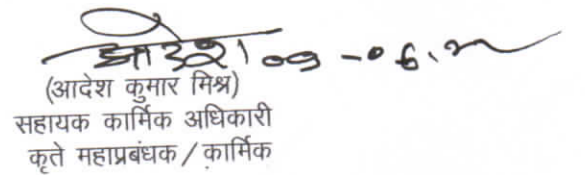 आदेश
(आदेश कुमार मिश्र)
सहायक कार्मिक अधिकारी
कृते महाप्रबंधक / कार्मिक